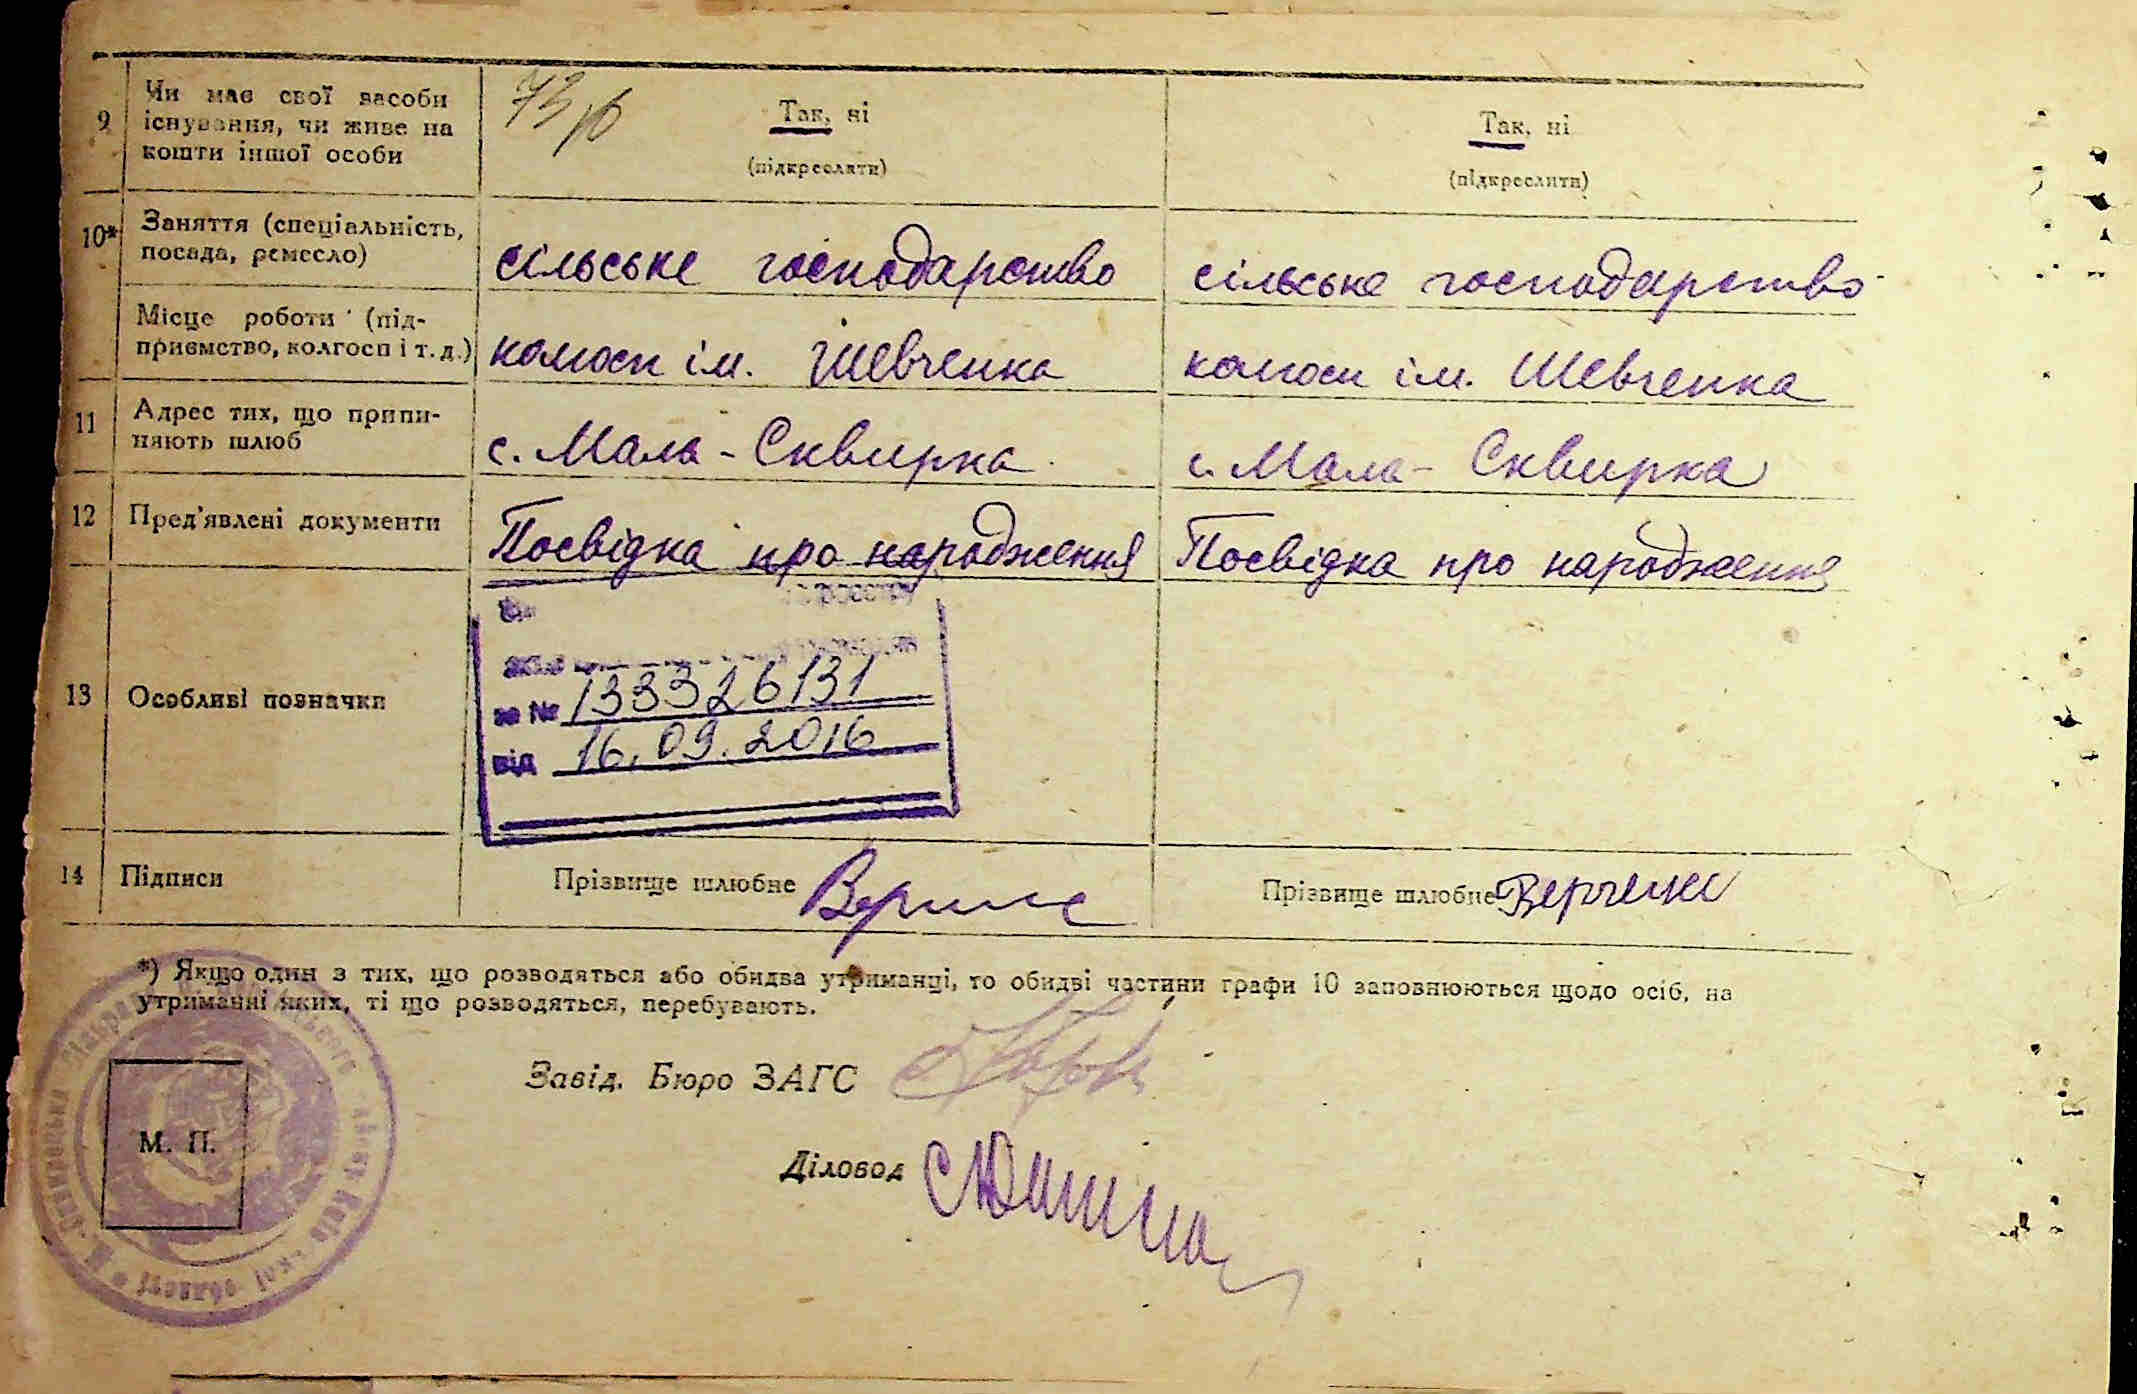 9 Чи має свої засоби
існування, чи живе на
кошти іншої особи
Так, ні
(підкреслити)
Так, ні
(підкреслити)
10* Заняття (спеціальність,
посада, ремесло)
сільське господарство
сільське господарство
Місце роботи (під-
приємство, колгосп і т. д.)
колгосп ім. Шевченка
колгосп ім. Шевченка
11 Адрес тих, що припи-
няють шлюб
с. Мала-Сквирка
с. Мала-Сквирка
12 Пред'явлені документи
Посвідка про народження
Посвідка про народження
13 Особливі позначки
за № 133326131
від 16.09.2016
14 Підписи
Прізвище шлюбне
Прізвище шлюбне
*) Якщо один з тих, що розводяться або обидва утриманці, то обидві частини графи 10 заповнюються щодо осіб, на
утриманні яких, ті що розводяться, перебувають.
Завід. Бюро ЗАГС
Діловод
М. П.